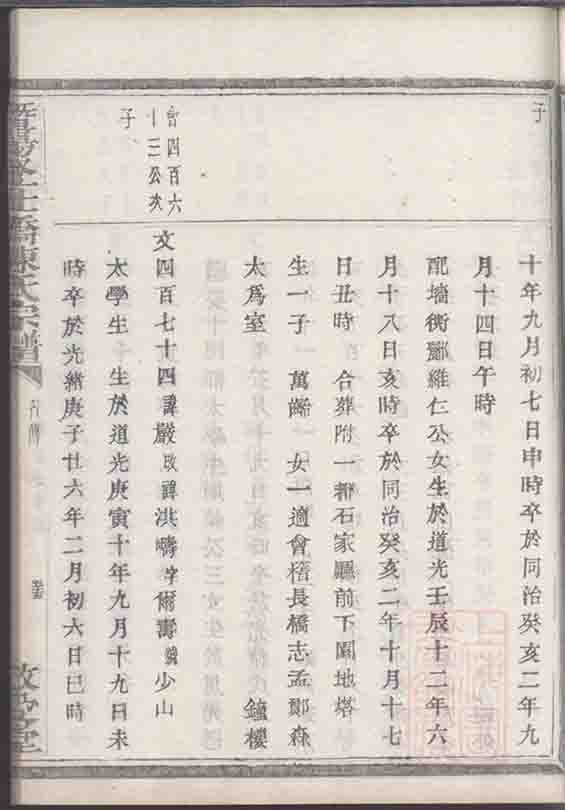 子
十年九月初七日申時卒於同治癸亥二年九
月十四日午時
配墻衖酈維仁公女生於道光壬辰十二年六
月十八日亥時卒於同治癸亥二年十月十七
日丑時 合葬附一都石家 前下園地塔
生一子 萬齡 女一適會稽長橋志孟鄭森
太爲室 鐘樓
會四百六
十三公次
子
文四百七十四諱嚴改諱洪疇字爾壽號少山
太學生 生於道光庚寅十年九月十九日未
時卒於光緒庚子廿六年二月初六日巳時
橋陳氏宗譜
行傳